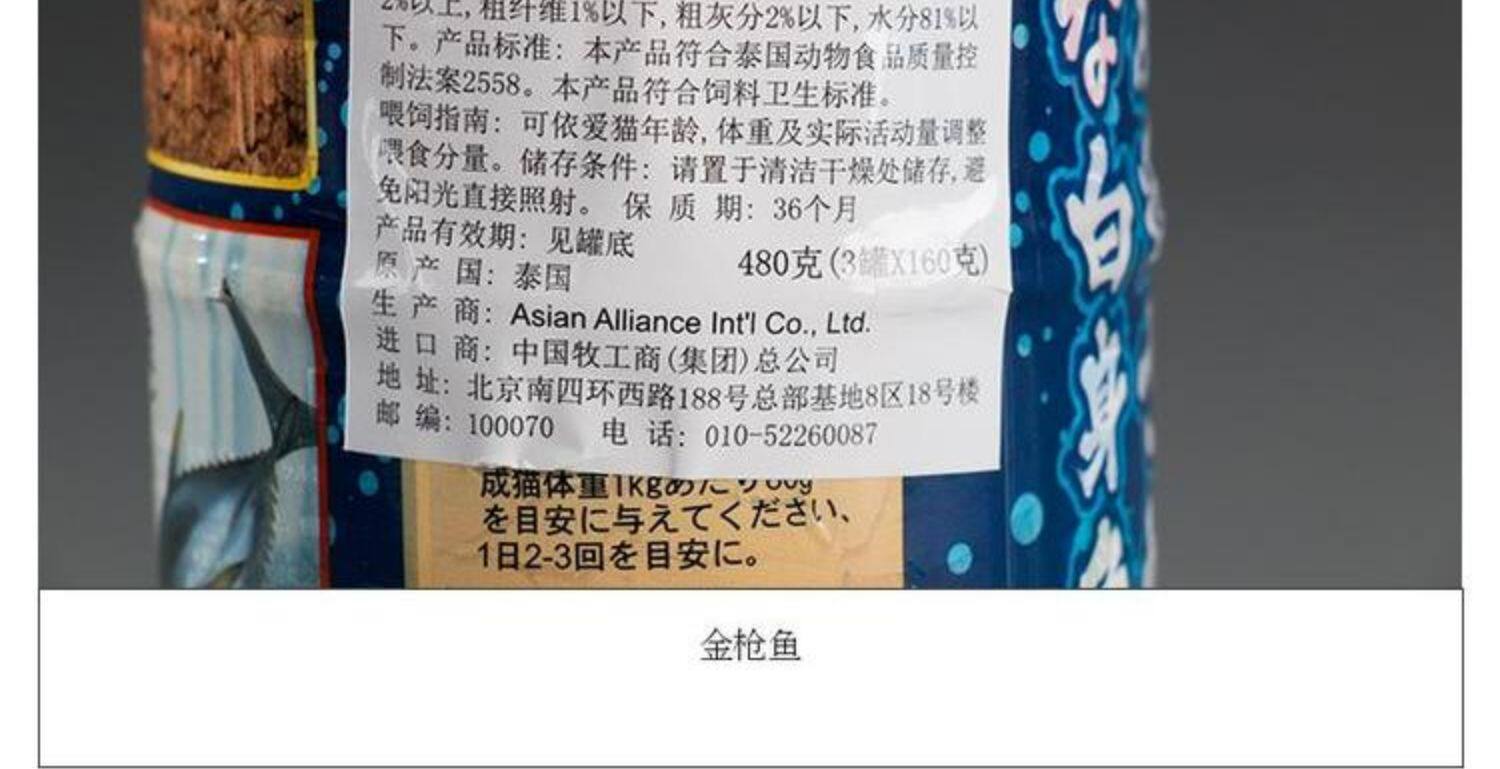 2%以上,粗纤维1%以下,粗灰分2%以下,水分81%以
下。产品标准：本产品符合泰国动物食品质量控
制法案2558。本产品符合饲料卫生标准。
喂饲指南：可依爱猫年龄,体重及实际活动量调整
喂食分量。储存条件：请置于清洁干燥处储存,避
免阳光直接照射。 保 质 期：36个月
产品有效期：见罐底
480克(3罐X160克)
原 产 国：泰国
生 产 商：Asian Alliance Int'l Co., Ltd.
进 口 商：中国牧工商(集团)总公司
地 址：北京南四环西路188号总部基地8区18号楼
邮 编：100070 电 话：010-52260087
成猫体重1kgあたり80g
を目安に与えてください、
1日2-3回を目安に。
な白身
金枪鱼